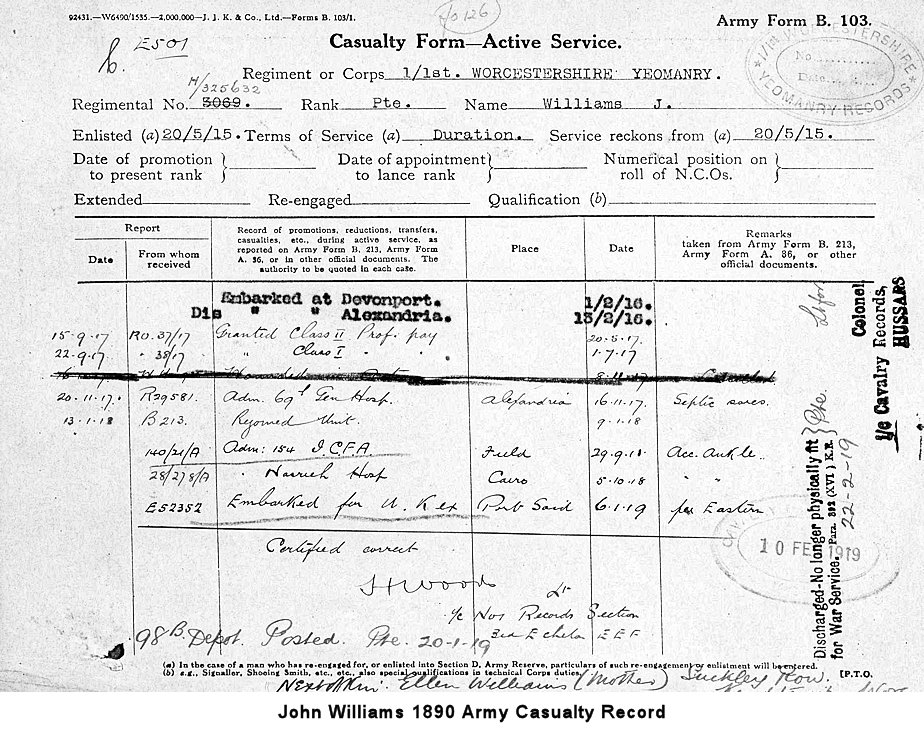 92431.—W6490/1535.—2,000,000—J. J. K. & Co., Ltd.—Forms B. 103/1.
Army Form B. 103.
E501
Casualty Form—Active Service.
Regiment or Corps 1/1st. WORCESTERSHIRE YEOMANRY.
1/1st WORCESTERSHIRE YEOMANRY RECORDS
No.
Date
H/325632
Regimental No. 3069. Rank Pte. Name Williams J.
Enlisted (a) 20/5/15. Terms of Service (a) Duration. Service reckons from (a) 20/5/15.
Date of promotion to present rank
Date of appointment to lance rank
Numerical position on roll of N.C.Os.
Extended Re-engaged Qualification (b)
Report
Date
From whom received
Record of promotions, reductions, transfers, casualties, etc., during active service, as reported on Army Form B. 213, Army Form A. 36, or in other official documents. The authority to be quoted in each case.
Place
Date
Remarks taken from Army Form B. 213, Army Form A. 36, or other official documents.
Embarked at Devonport. 1/2/16.
Dis " " Alexandria. 13/2/16.
15-9-17 RO. 37/17 Granted Class II Prof. pay 20-5-17
22-9-17 " 38/17 " Class I " " 1-7-17
20-11-17 R29581. Adm. 69th Gen Hosp. Alexandria 16-11-17. Septic sores.
13-1-18 B213. Rejoined Unit. 9-1-18
140/21/A Adm: 154 I.C.F.A. Field 29-9-18 Acc. Ankle.
28/278/A " Nasrieh Hosp Cairo 5-10-18 " "
E52352 Embarked for U.K ex Port Said 6-1-19 per Eastern
Certified correct
10 FEB 1919
Lt
i/c No1 Records Section
3rd Echelon E E F
98 B Depot. Posted. Pte. 20-1-19
Discharged-No longer physically fit for War Service.—Para. 392 (XVI) K.R.
Pte.
22-2-19
Colonel
i/c Cavalry Records,
HUSSARS
(a) In the case of a man who has re-engaged for, or enlisted into Section D, Army Reserve, particulars of such re-engagement or enlistment will be entered.
(b) e.g., Signaller, Shoeing Smith, etc., etc., also special qualifications in technical Corps duties.
[P.T.O.
Next of Kin: Ellen Williams (Mother) Suckley Row.
John Williams 1890 Army Casualty Record